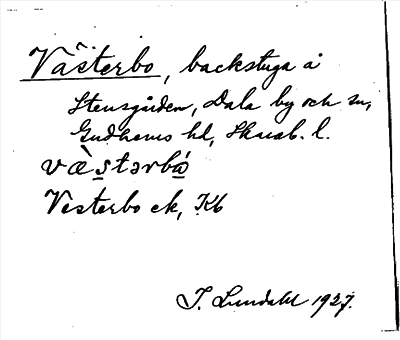 Västerbo, backstuga å
Stensgården, Dala by och sn,
Gudhems hd, Skarab. l.
væ̀stərbó
Vesterbo ek, Kb
I. Lundahl 1927.